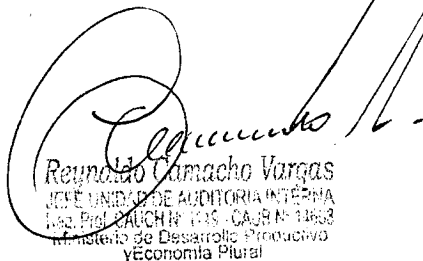 Reynaldo Camacho Vargas
JEFE UNIDAD DE AUDITORIA INTERNA
CAUCH Nº CAUB Nº
Ministerio de Desarrollo Productivo
y Economía Plural